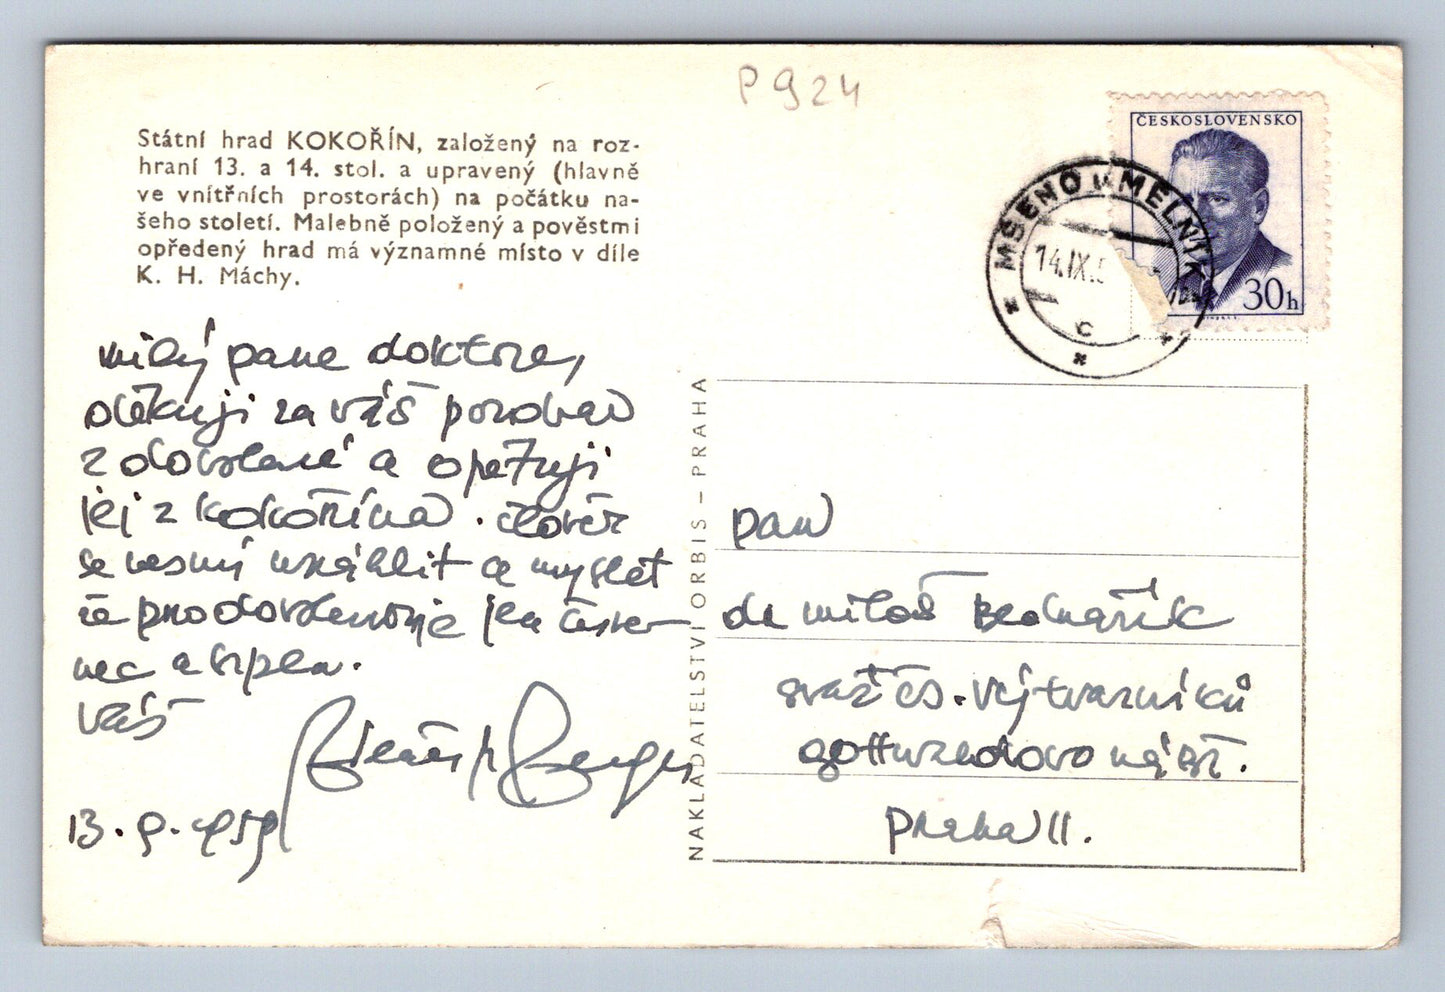 P 924
Státní hrad KOKOŘÍN, založený na roz-
hraní 13. a 14. stol. a upravený (hlavně
ve vnitřních prostorách) na počátku na-
šeho století. Malebně položený a pověstmi
opředený hrad má významné místo v díle
K. H. Máchy.
ČESKOSLOVENSKO
30h
MŠENO u MĚLNÍKA
14.IX.5
c
milý pane doktore,
děkuji za váš pozdrav
z dovolené a opětuji
jej z kokořína. člověk
se nesmí unáhlit a myslet
že pro dovolenou je jen červe-
nec a srpen.
váš
13. 9. 1959
NAKLADATELSTVÍ ORBIS – PRAHA
pan
dr miloš Bednařík
svaz čs. výtvarníků
gottwaldovo nábř.
praha II.